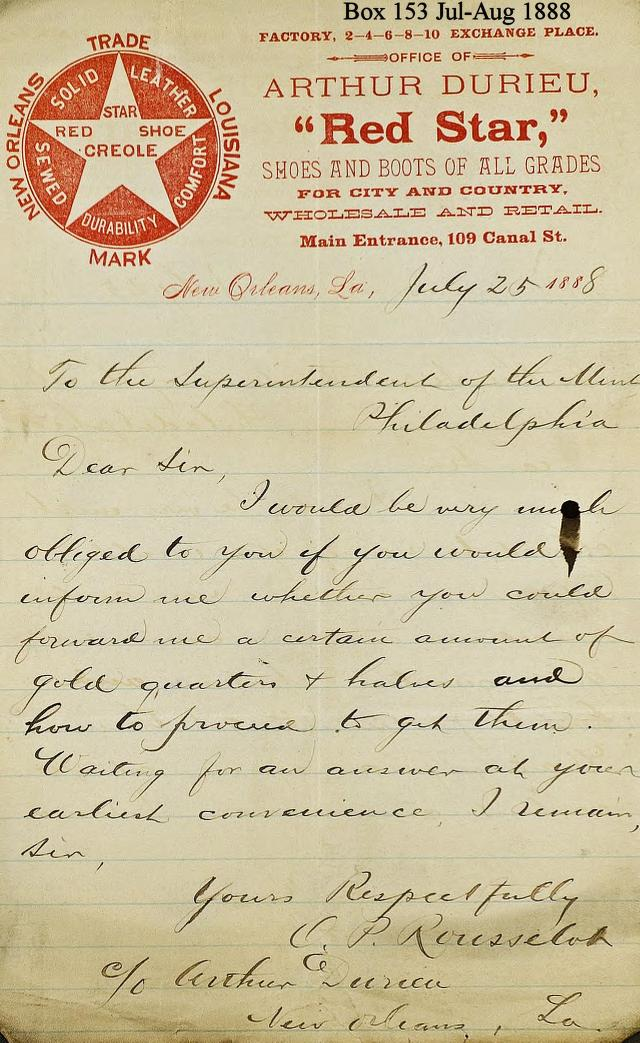 Box 153 Jul-Aug 1888
FACTORY, 2-4-6-8-10 EXCHANGE PLACE.
OFFICE OF
ARTHUR DURIEU,
"Red Star,"
SHOES AND BOOTS OF ALL GRADES
FOR CITY AND COUNTRY,
WHOLESALE AND RETAIL.
Main Entrance, 109 Canal St.
TRADE
NEW ORLEANS
LOUISIANA
SOLID
LEATHER
STAR
RED SHOE
CREOLE
SEWED
COMFORT
DURABILITY
MARK
New Orleans, La, July 25 1888
To the Superintendent of the Mint
Philadelphia
Dear Sir,
I would be very much
obliged to you if you would
inform me whether you could
forward me a certain amount of
gold quarters & halves and
how to proceed to get them.
Waiting for an answer at your
earliest convenience, I remain,
Sir,
Yours Respectfully
P. Rousselot
c/o Arthur Durieu
New Orleans, La.